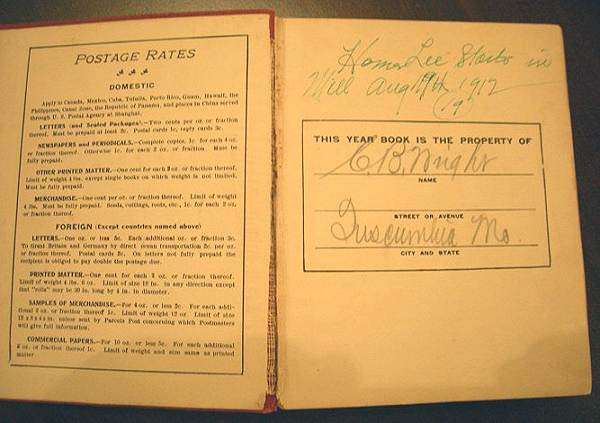 POSTAGE RATES
DOMESTIC
Apply to Canada, Mexico, Cuba, Tutuila, Porto Rico, Guam, Hawaii, the
Philippines, Canal Zone, the Republic of Panama, and places in China served
through U. S. Postal Agency at Shanghai.
LETTERS (and Sealed Packages).—Two cents per oz. or fraction
thereof. Must be prepaid at least 2c. Postal cards 1c, reply cards 2c.
NEWSPAPERS and PERIODICALS.—Complete copies, 1c. for each 4 oz.
or fraction thereof. Otherwise 1c. for each 2 oz. or fraction. Must be
fully prepaid.
OTHER PRINTED MATTER.—One cent for each 2 oz. or fraction thereof.
Limit of weight 4 lbs. except single books on which weight is not limited.
Must be fully prepaid.
MERCHANDISE.—One cent per oz. or fraction thereof. Limit of weight
4 lbs. Must be fully prepaid. Seeds, cuttings, roots, etc., 1c. for each 2 oz.
or fraction thereof.
FOREIGN (Except countries named above)
LETTERS.—One oz. or less 5c. Each additional oz. or fraction 3c.
To Great Britain and Germany by direct ocean transportation 2c. per oz.
or fraction thereof. Postal cards 2c. On letters not fully prepaid the
recipient is obliged to pay double the postage due.
PRINTED MATTER.—One cent for each 2 oz. or fraction thereof.
Limit of weight 4 lbs. 6 oz. Limit of size 18 in. in any direction except
that "rolls" may be 30 in. long by 4 in. in diameter.
SAMPLES OF MERCHANDISE.—For 4 oz. or less 2c. For each addi-
tional 2 oz. or fraction thereof 1c. Limit of weight 12 oz. Limit of size
12 x 8 x 4 in. unless sent by Parcels Post concerning which Postmasters
will give full information.
COMMERCIAL PAPERS.—For 10 oz. or less 5c. For each additional
2 oz. or fraction thereof 1c. Limit of weight and size same as printed
matter
Homer Lee in
Mill Aug 19th 1912
19
THIS YEAR BOOK IS THE PROPERTY OF
C. B. Wright
NAME
STREET OR AVENUE
Tuscumbia Mo
CITY AND STATE